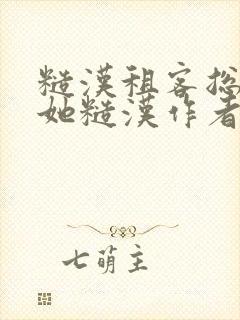 糙漢租客總
她糙漢作者
七萌主